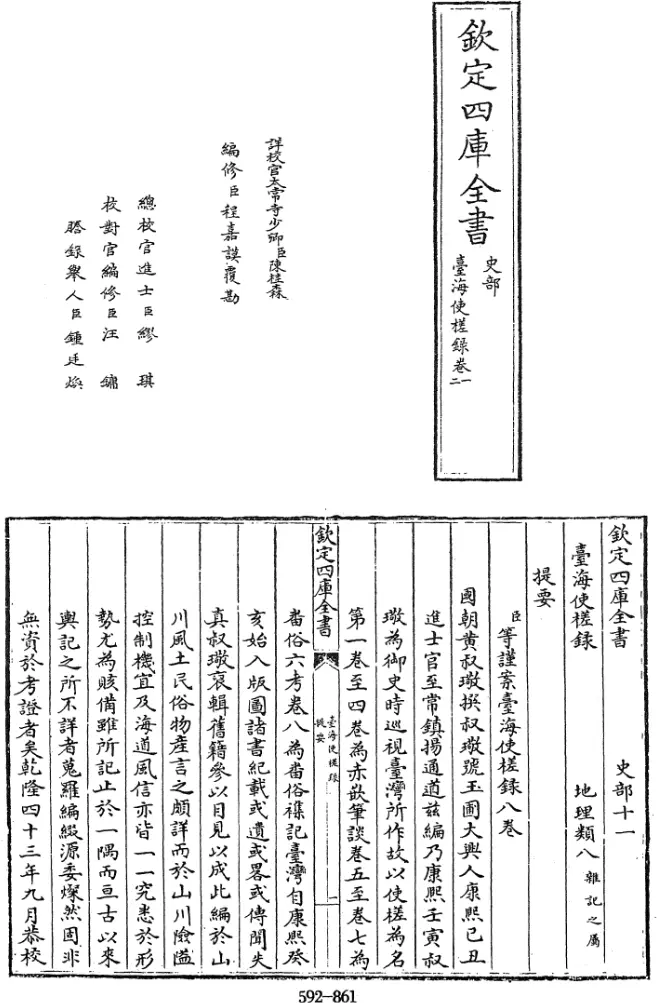 欽定四庫全書
史部
臺海使槎錄卷一二
詳校官太常寺少卿臣陳桂森
編修臣程嘉謨覆勘
總校官進士臣繆琪
校對官編修臣汪鏞
謄錄舉人臣鍾廷煥
欽定四庫全書 史部十一
臺海使槎録 地理類八雜記之屬
提要
臣等謹案臺海使槎録八卷
國朝黄叔璥撰叔璥號玉圃大興人康熙己丑
進士官至常鎮揚通道兹編乃康熙壬寅叔
璥為御史時巡視臺灣所作故以使槎為名
第一卷至四卷為赤嵌筆談卷五至卷七為
欽定四庫全書 臺海使槎録提要 一
番俗六考卷八為番俗襍記臺灣自康熙癸
亥始入版圖諸書紀載或遺或畧或傳聞失
真叔璥裒輯舊籍參以目見以成此編於山
川風土民俗物產言之頗詳而於山川險隘
控制機宜及海道風信亦皆一一究悉於形
勢尤為賅備雖所記止於一隅而亘古以來
輿記之所不詳者蒐羅編綴源委燦然固非
無資於考證者矣乾隆四十三年九月恭校
592-861